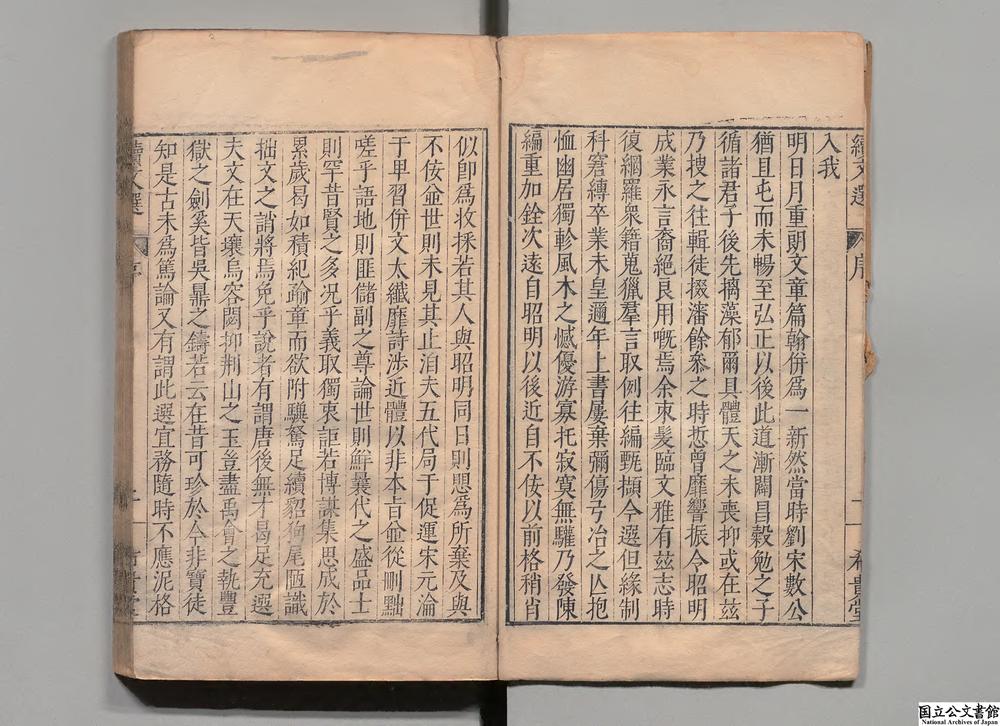 續文選 序 一 希貴堂
入我
明日月重朗文章篇翰併爲一新然當時劉宋數公
猶且屯而未暢至弘正以後此道漸闢昌穀勉之子
循諸君子後先摛藻郁爾具體天之未喪抑或在茲
乃搜之往輯徒掇瀋餘叅之時悊曾靡響振令昭明
成業永言裔絕良用嘅焉余束髮臨文雅有茲志時
復網羅衆籍蒐獵羣言取例往編甄擷今選但緣制
科窘縛卒業未皇邇年上書屢棄彌傷弓冶之亾抱
恤幽居獨軫風木之憾優游寡托寂寞無驩乃發陳
編重加銓次遠自昭明以後近自不佞以前格稍肖
似卽爲收採若其人與昭明同日則思爲所棄及與
不佞並世則未見其止洎夫五代局于促運宋元淪
于卑習併文太纖靡詩渉近體以非本旨並從刪黜
嗟乎語地則匪儲副之尊論世則鮮曩代之盛品士
則罕昔賢之多況乎義取獨衷詎若博謀集思成於
累歲曷如積紀踰童而欲附驥駑足續貂狗尾陋識
拙文之誚將焉免乎說者有謂唐後無才曷足充選
夫文在天壤烏容闕抑荆山之玉豈盡禹會之執豐
獄之劍奚皆吳鼎之鑄若云在昔可珍於今非寶徒
知是古未爲篤論又有謂此選宜務隨時不應泥格
續文選 序 二 希貴堂
国立公文書館
National Archives of Japan